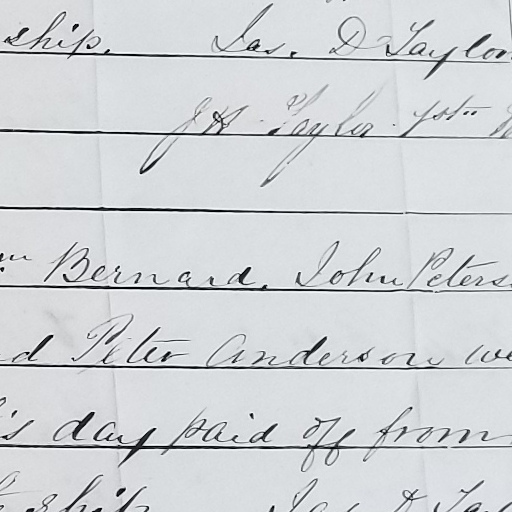 ship. Jas. D Taylor
J H Taylor 1st
Bernard. John Peters
d Peter Anderson we
's day paid off from
ship Jas D Tay